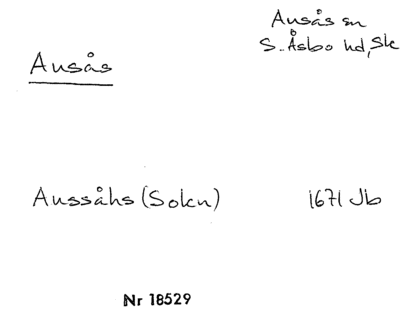 Ausås sn
S. Åsbo hd, Sk
Ausås
Aussåhs (Sokn) 1671 Jb
Nr 18529